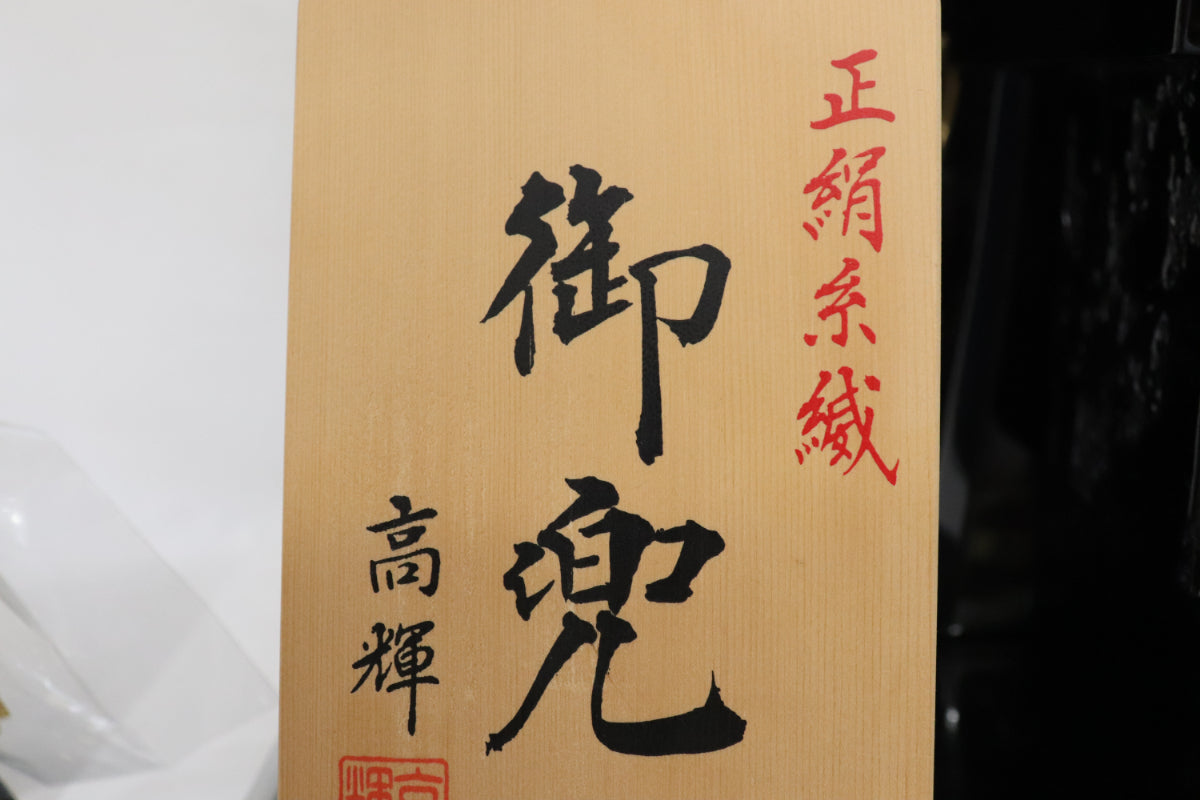 正絹糸縅
御兜
高輝
高輝